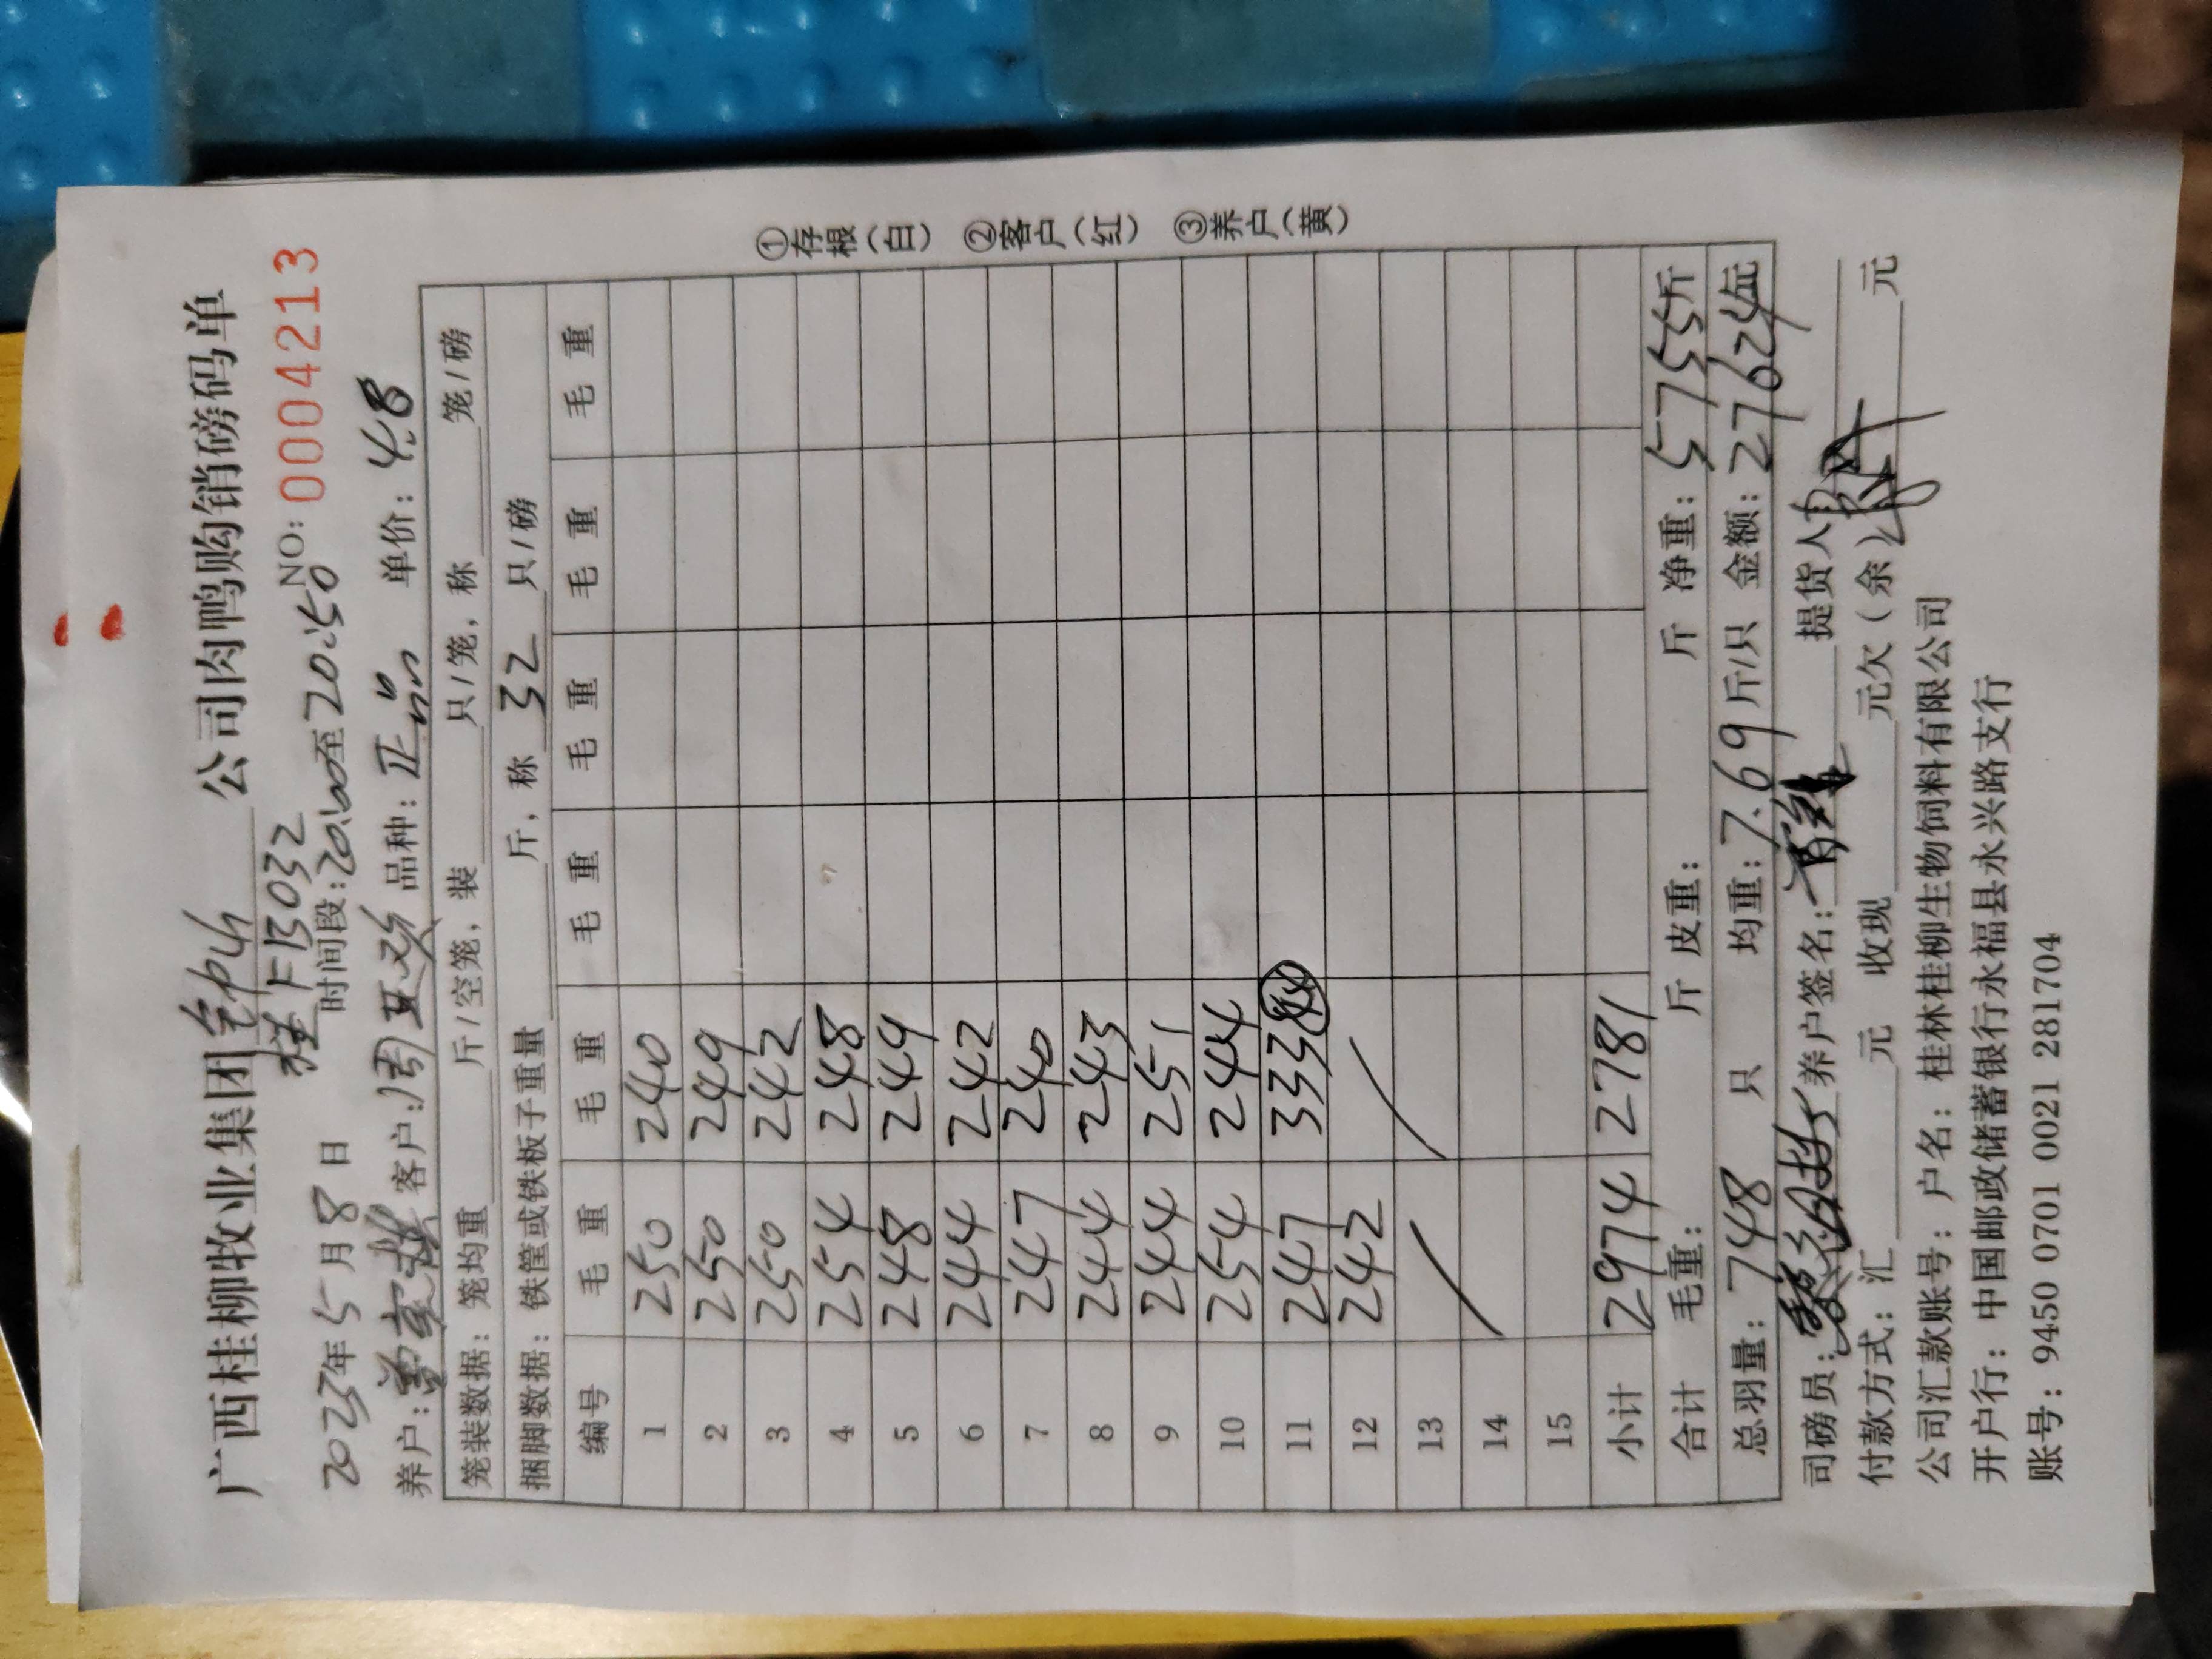 广西桂柳牧业集团 公司肉鸭购销磅码单
桂FB032
2023年5月8日 时间段:20:00至20:50 NO: 0004213
养户: 客户:周 品种:正品 单价:4.8
笼装数据:笼均重 斤/空笼,装 只/笼,称 笼/磅
捆脚数据:铁筐或铁板子重量 斤,称 32 只/磅
编号 毛重 毛重 毛重 毛重 毛重 毛重
1 250 240
2 250 249
3 250 242
4 254 248
5 248 249
6 244 242
7 247 240
8 244 243
9 244 251
10 254 244
11 247 333 44
12 242
13
14
15
小计 2974 2781
合计 毛重: 斤 皮重: 斤 净重:5755斤
总羽量:748 只 均重:7.69斤/只 金额:27624元
司磅员: 养户签名: 提货人
付款方式:汇 元 收现 元欠(余) 元
公司汇款账号:户名:桂林桂柳生物饲料有限公司
开户行:中国邮政储蓄银行永福县永兴路支行
账号:9450 0701 0021 281704
①存根(白) ②客户(红) ③养户(黄)